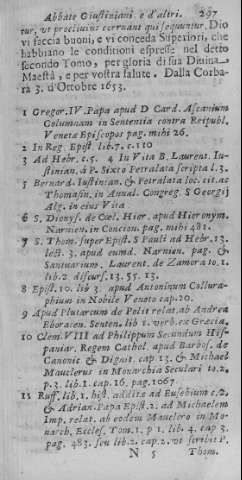 Abbate Giustiniani e d'altri. 297
tur, ut procliuius cernant qui sequuntur. Dio
vi faccia buoni, e vi conceda Superiori, che
habbiano le condizioni espresse nel detto
secondo Tomo, per gloria di sua Diuina
Maestà, e per vostra salute. Dalla Corba-
ra 3. d'Ottobre 1653.
1 Gregor. IV. Papa apud D Card. Ascanium
Columnam in Sententia contra Reipubl.
Venetæ Episcopos pag. mihi 26.
2 In Reg. Epist lib.7. c.110
3 Ad Hebr. c.5. 4 In Vita B. Laurent. Iu-
stinian. à P. Sixto Petralata scripta l.3.
5 Bernard. Iustinian. & Petralata loc. cit. ac
Thomasin. in Annal. Congreg. S Georgij
Alg. in eius Vita
6 S. Dionys. de Cœl. Hier. apud Hieronym.
Narnien. in Concion. pag. mihi 481.
7 S. Thom. super Epist. S Pauli ad Hebr. 13.
lect. 3. apud eumd. Narnien. pag. &
Sanctuarium. Laurent. de Zamora to. 1.
lib.2. discurs. 13. §5. 13.
8 Epist. 10. lib 3. apud Antoninum Collura-
phium in Nobile Veneto cap.20.
9 Apud Plutarcum de Polit relat. ab Andrea
Eboracen. Senten. lib 1. verb. ex Græcia.
10 Clem. VIII ad Philippum Secundum His-
paniar. Regem Cathol. apud Barbos. de
Canonic & Dignit. cap. 13. & Michael
Mauclerus in Monarchia Seculari to.2.
p.3. lib.1. cap.16. pag. 1067
11 Ruff. lib.1. hist. addita ad Eusebium c.2.
& Adrian. Papa Epist.2. ad Michaelem
Imp. relat. ab eodem Mauclero in Mo-
narch. Eccles. Tom.1. p 1. lib. 4. cap 3.
pag. 483. seu lib.2. cap.2. vt scribit P.
N 5 Thom.